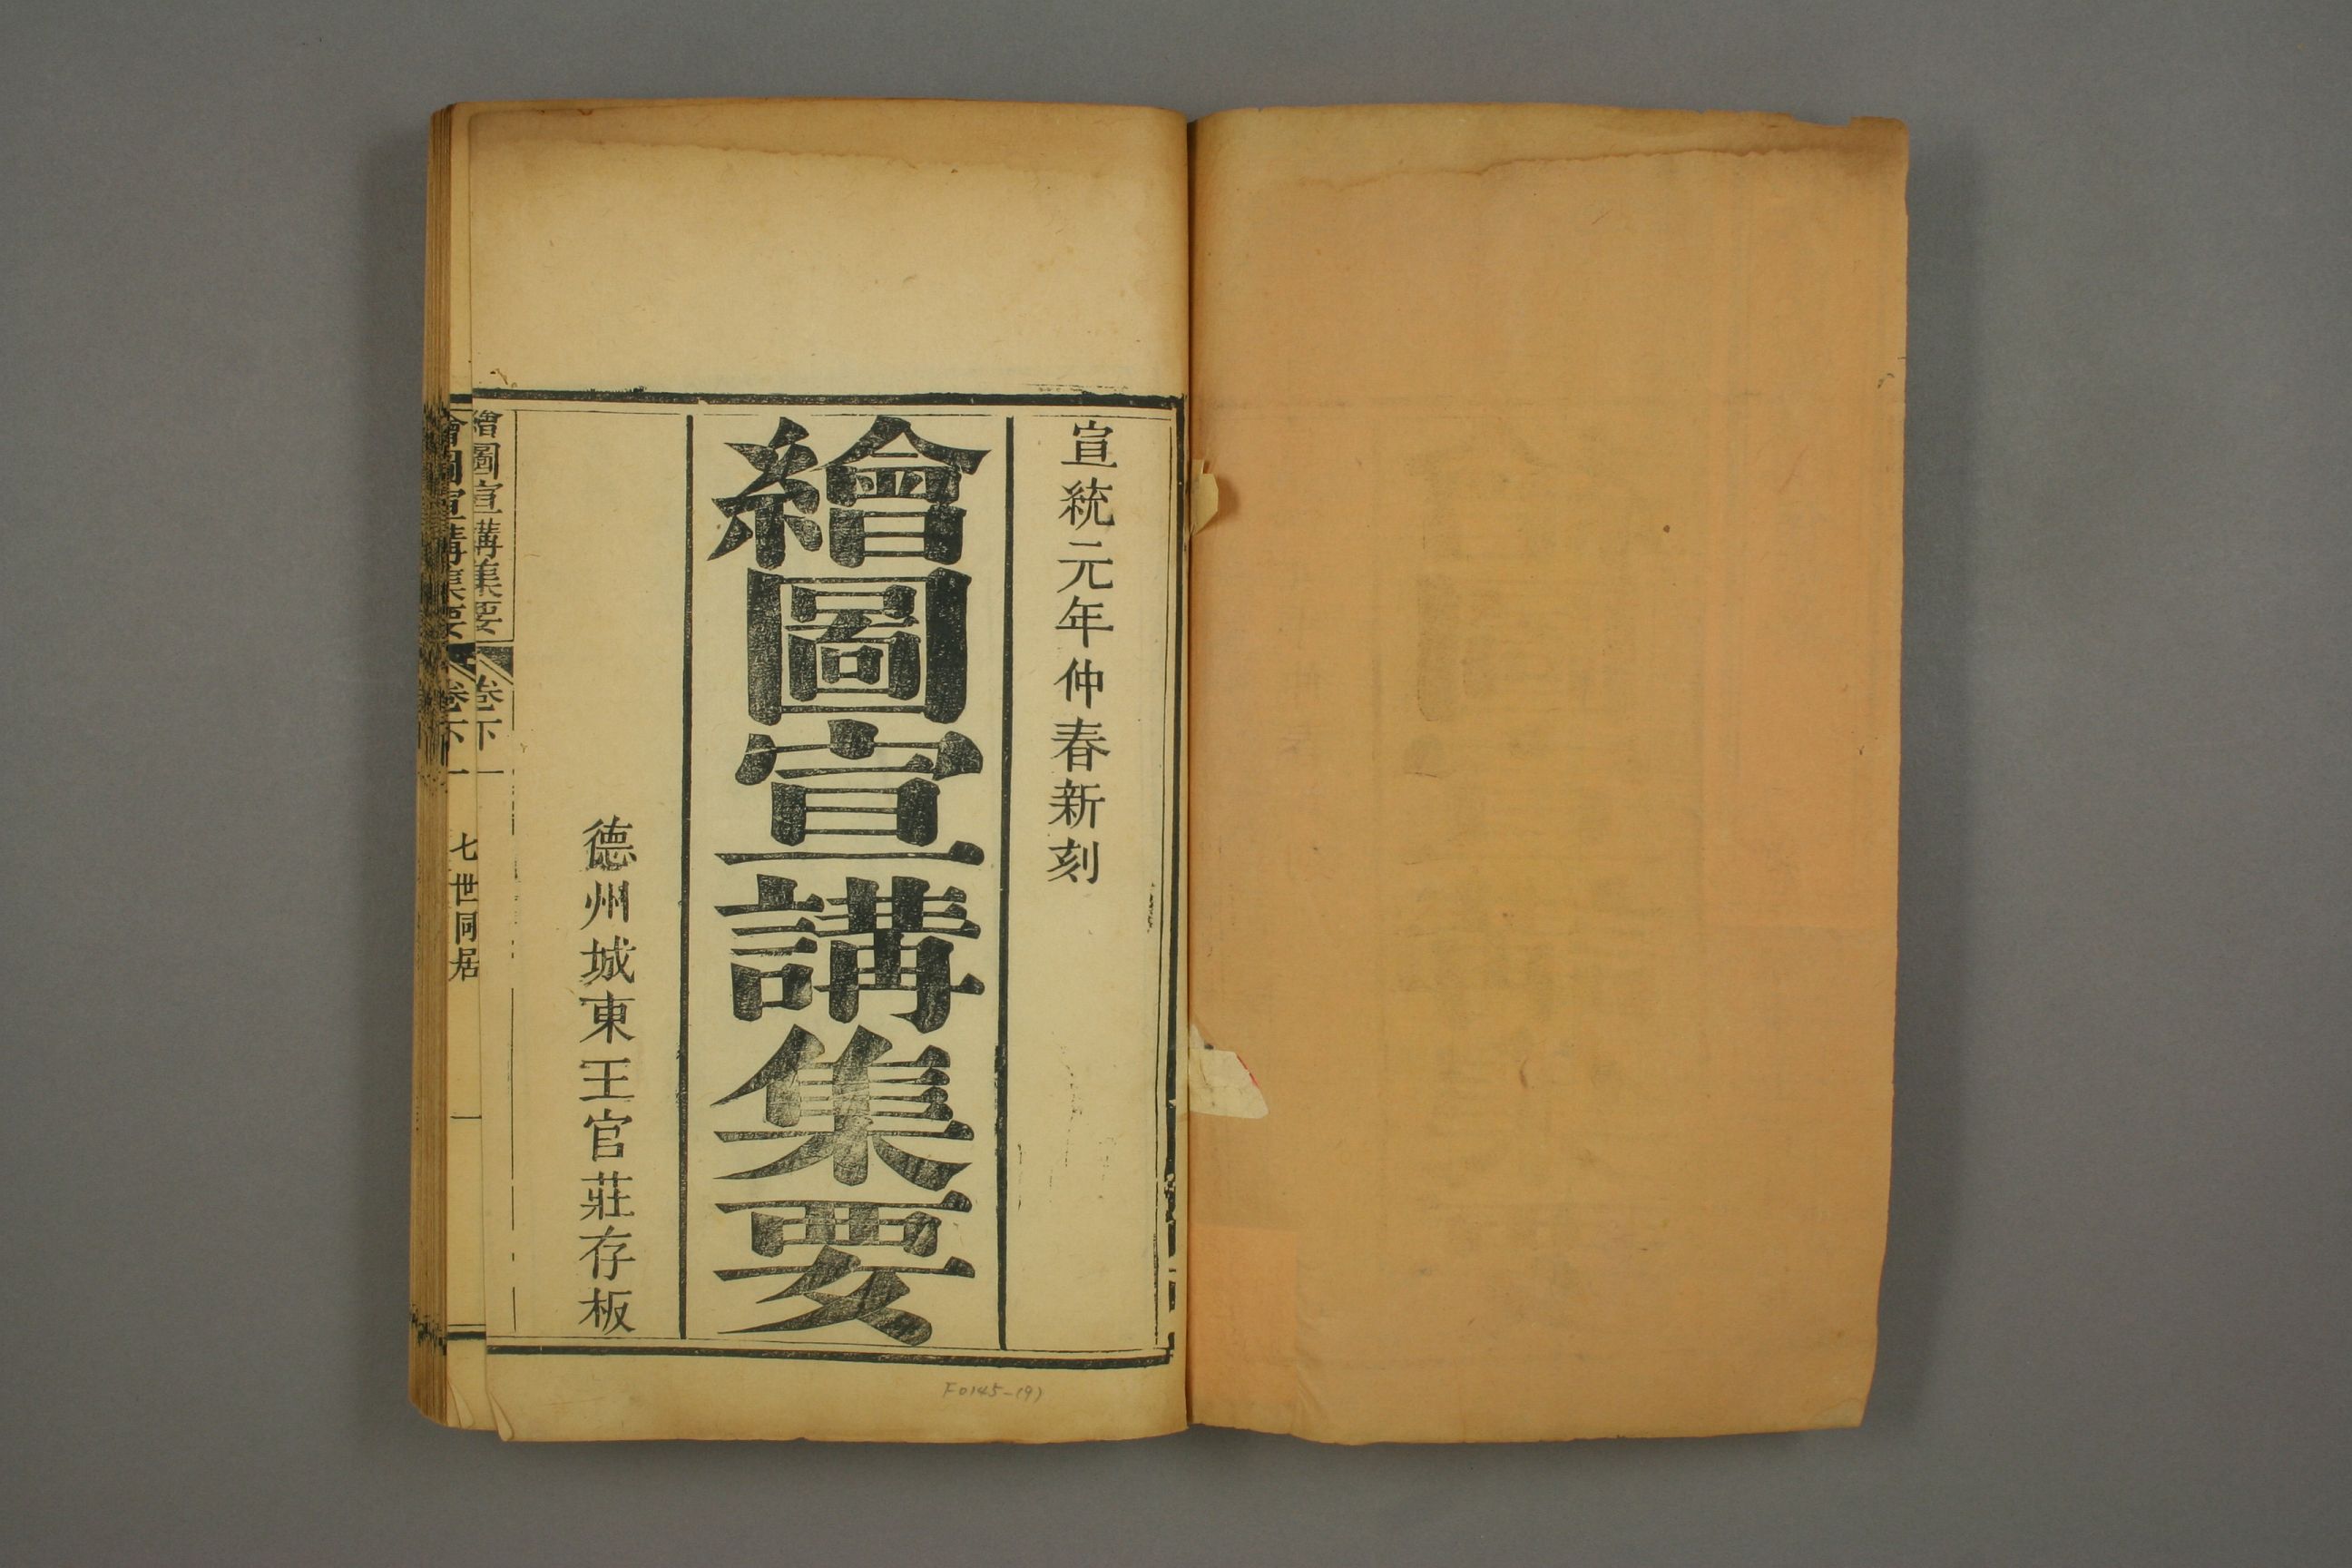 宣統元年仲春新刻
繪圖宣講集要
德州城東王官莊存板
繪圖宣講集要 卷下 一
繪圖宣講集要 卷下 一 七世同居 一
F0145-(9)